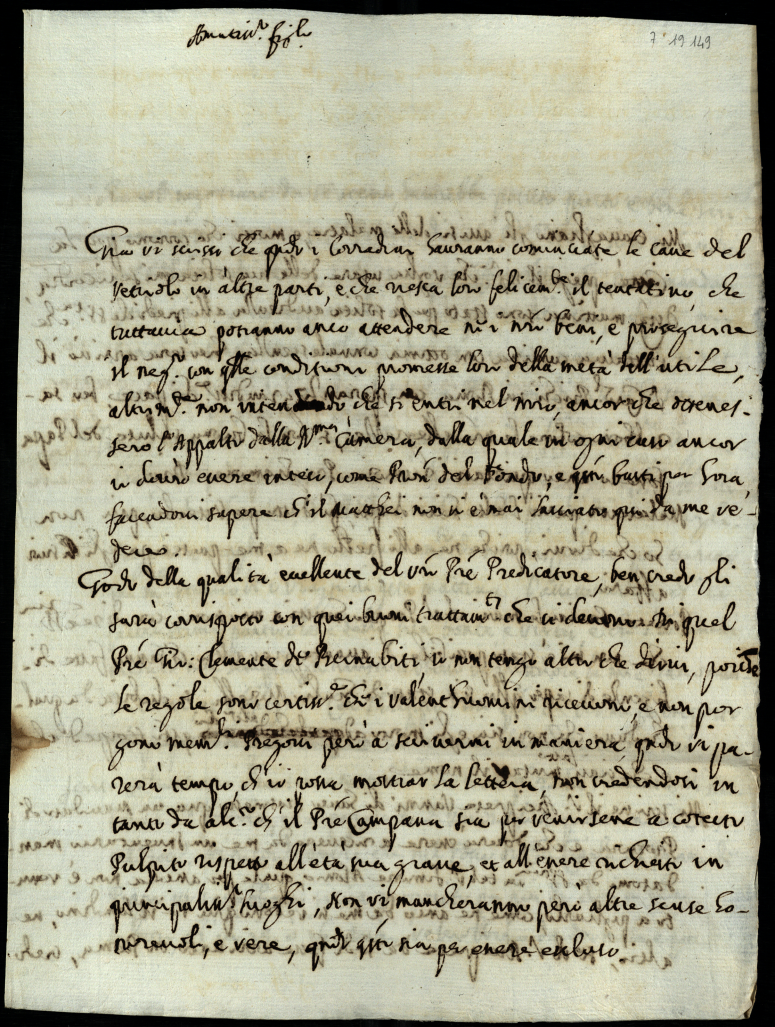 7° 19 149
Amatiss.º fig.lo
Già vi scrissi che qndo i Corradini hauranno cominciate le caue del
Vetriolo in altre parti, e che riesca loro felicem.te il tentatiuo, che
tuttauia potranno anco attendere ne i miei beni, e proseguire
il neg.º con qlle conditioni promesse loro della metà dell'utile,
altrim.te non intendendo che si entri nel mio, ancor che ottenes-
sero l'Appalto dalla R.ma Camera, dalla quale in ogni caso ancor
io dourò essere inteso, come Pron del fondo, e qsto basti per hora,
facendoui sapere ch il Matthei non si è mai lasciato qui da me ve-
dere.
Godo della qualità eccellente del vro Pre Predicatore, ben credo gli
sarà corrisposto con quei buoni trattam.ti che si deuono. Di quel
Pre Clemente de Barnabiti io non tengo altro che dirui, poiche
le regole sono certiss.e che i valent'huomini riceuono, e non por
gono mem.li Pregoui però a scriuermi in maniera, qndo vi pa-
rerà tempo, ch io possa mostrar la lettera, non uedendosi in
tanto da alc.º ch il Pre Campana sia per venirsene a cotesto
Pulpito rispetto all'età sua graue, et all'essere richiesto in
principaliss.i luoghi, Non vi mancheranno però altre scuse ho-
noreuoli, e vere, qndo qsti sia per essere escluso.